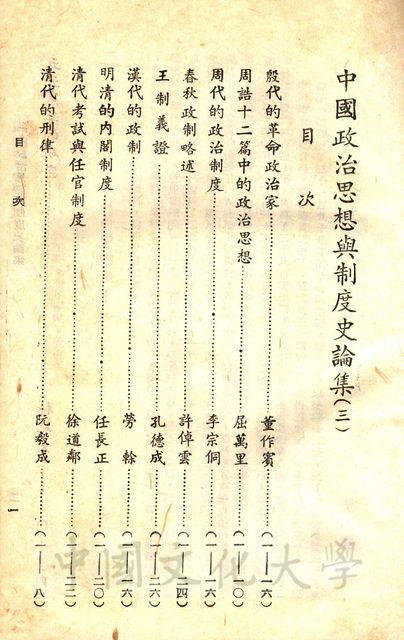 中國政治思想與制度史論集(三)
目次
殷代的革命政治家……董作賓……(一—一六)
周誥十二篇中的政治思想……屈萬里……(一—一〇)
周代的政治制度……李宗侗……(一—一六)
春秋政制略述……許倬雲……(一—一四)
王制義證……孔德成……(一—二六)
漢代的政制……勞榦……(一—一六)
明清的內閣制度……任長正……(一—二〇)
清代考試與任官制度……徐道鄰……(一—二二)
清代的刑律……阮毅成……(一—八)
目次
一
中國文化大學